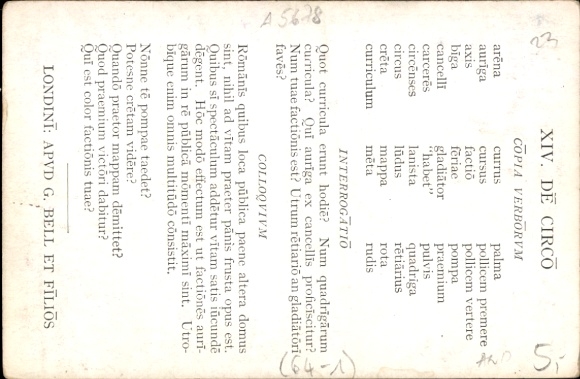 XIV. DĒ CIRCŌ
CŌPIA VERBŌRVM
arēna currus palma
aurīga cursus pollicem premere
axis factiō pollicem vertere
bīga fēriae pompa
cancellī gladiātor praemium
carcerēs "habet" pulvis
circēnsēs lanista quadrīga
circus lūdus rētiārius
crēta mappa rota
curriculum mēta rudis
INTERROGĀTIŌ
Quot curricula erunt hodiē? Num quadrīgārum
curricula? Quī aurīga ex cancellīs proficīscitur?
Num tuae factiōnis est? Utrum rētiāriō an gladiātōrī
favēs?
COLLOQVIVM
Rōmānīs quibus loca pūblica paene altera domus
sint, nihil ad vītam praeter pānis frusta opus est.
Quibus sī spectāculum addētur vītam satis iūcundē
dēgent. Hōc modō effectum est ut factiōnēs aurī-
gārum in rē pūblicā mōmentī māximī sint. Utro-
bīque enim omnis multitūdō cōnsistit.
Nōnne tē pompae taedet?
Potesne crētam vidēre?
Quandō praetor mappam dēmittet?
Quod praemium victōrī dabitur?
Quī est color factiōnis tuae?
LONDINĪ: APVD G. BELL ET FĪLIŌS
A 5678
23
5,-
(64-1)